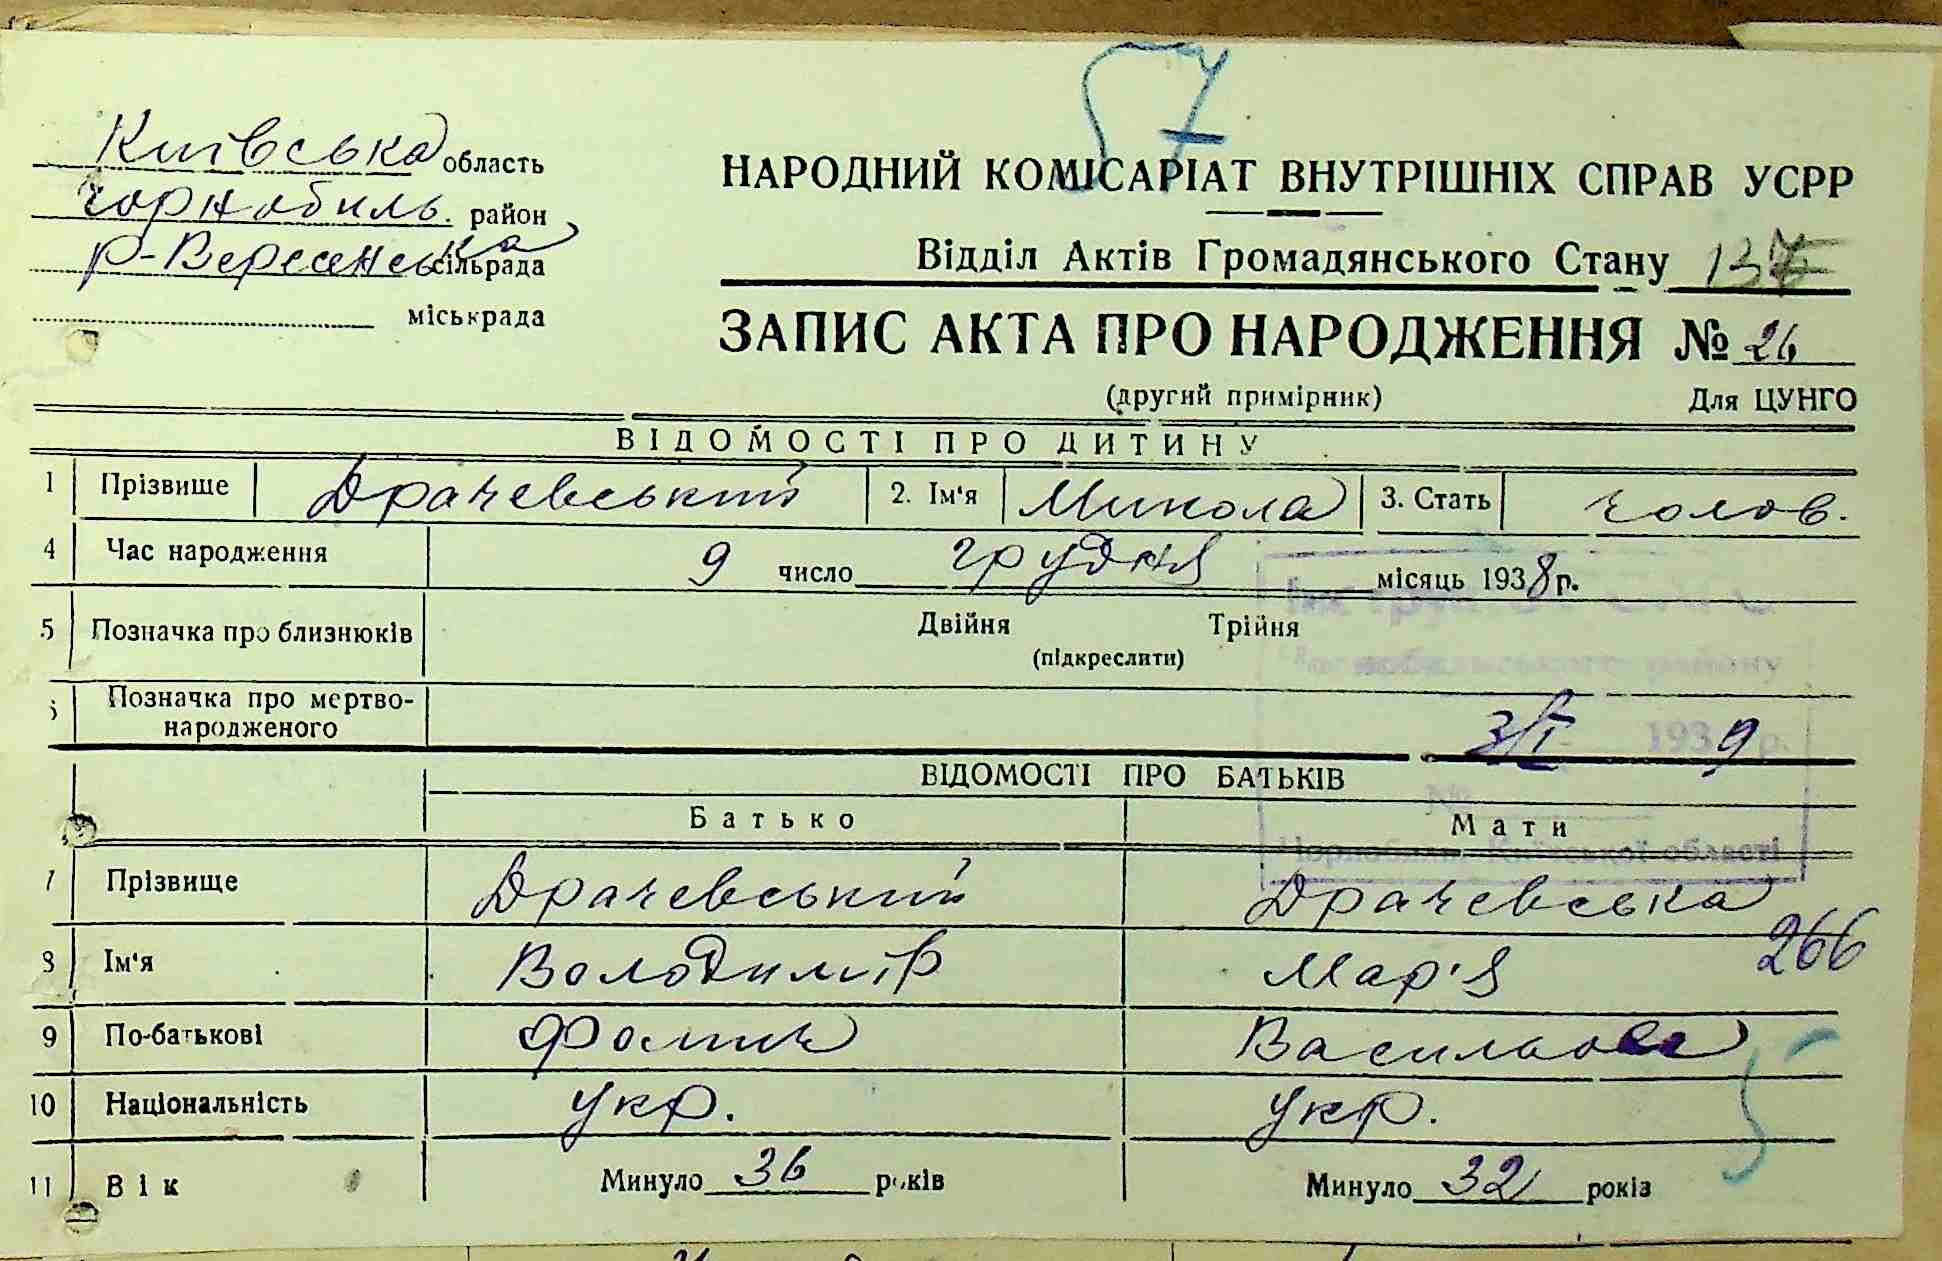 57
Київська область
Чорнобиль. район
р-Вересенська сільрада
міськрада
НАРОДНИЙ КОМІСАРІАТ ВНУТРІШНІХ СПРАВ УСРР
Відділ Актів Громадянського Стану 137
ЗАПИС АКТА ПРО НАРОДЖЕННЯ № 26
(другий примірник) Для ЦУНГО
ВІДОМОСТІ ПРО ДИТИНУ
1 Прізвище Драчевський 2. Ім'я Микола 3. Стать чолов.
4 Час народження 9 число грудня місяць 1938 р.
5 Позначка про близнюків Двійня Трійня
(підкреслити)
6 Позначка про мертво-
народженого
району
3/I 1939 р.
№
ВІДОМОСТІ ПРО БАТЬКІВ
Батько Мати
Чорнобиль Київської області
7 Прізвище Драчевський Драчевська
8 Ім'я Володимір Мар'я
266
9 По-батькові Фомич Василівна
10 Національність укр. укр.
11 Вік Минуло 36 років Минуло 32 років